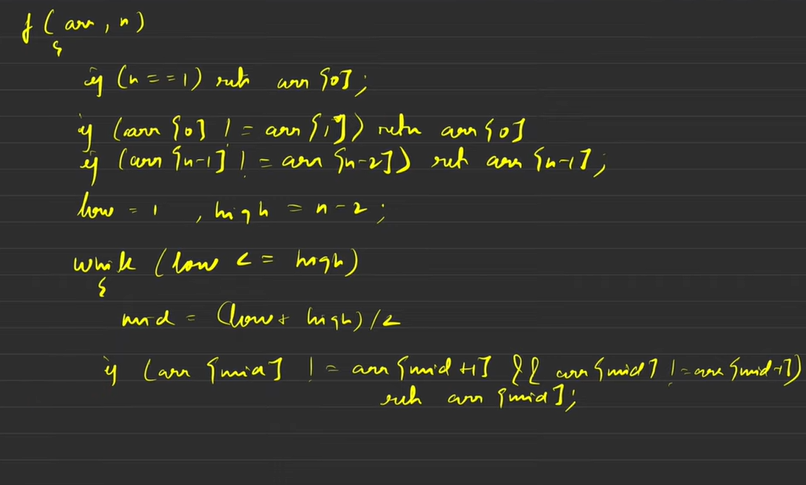 f (arr, n)
{
if (n == 1) retn arr[0];
if (arr[0] != arr[1]) retn arr[0]
if (arr[n-1] != arr[n-2]) ret arr[n-1];
low = 1, high = n-2;
while (low <= high)
{
mid = (low + high)/2
if (arr[mid] != arr[mid+1] && arr[mid] != arr[mid-1])
retn arr[mid];